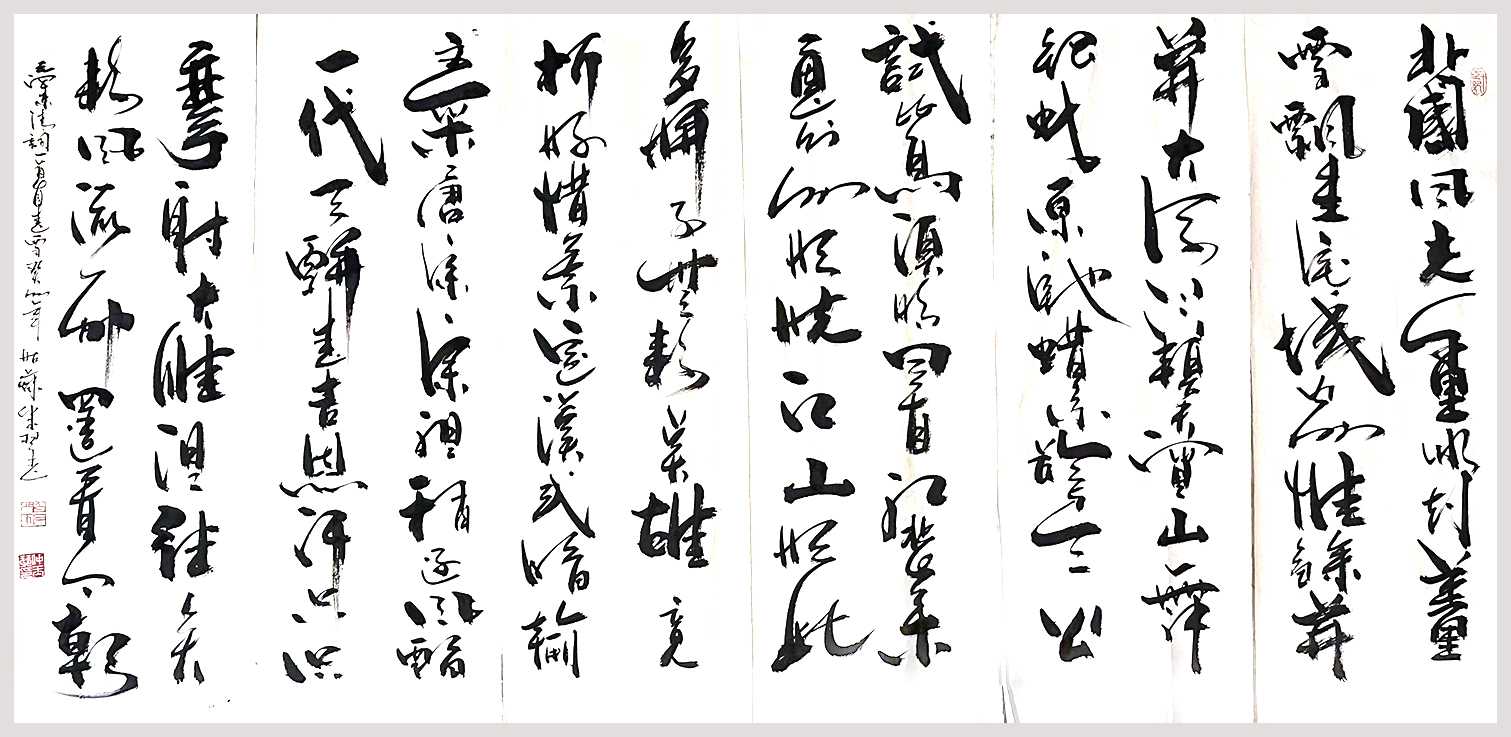 北國风光千里冰封萬里
雪飄望長城内外惟餘莽
莽大河上下頓失滔滔山舞
銀蛇原馳蠟象欲與天公
試比高須晴日看紅裝素
裹分外妖嬈江山如此
多嬌引無數英雄竞
折腰惜秦皇漢武略輸
文采唐宗宋祖稍遜風騷
一代天驕成吉思汗只识
彎弓射大雕俱往矣
數風流人物還看今朝
毛澤東詞一首 姑蘇朱